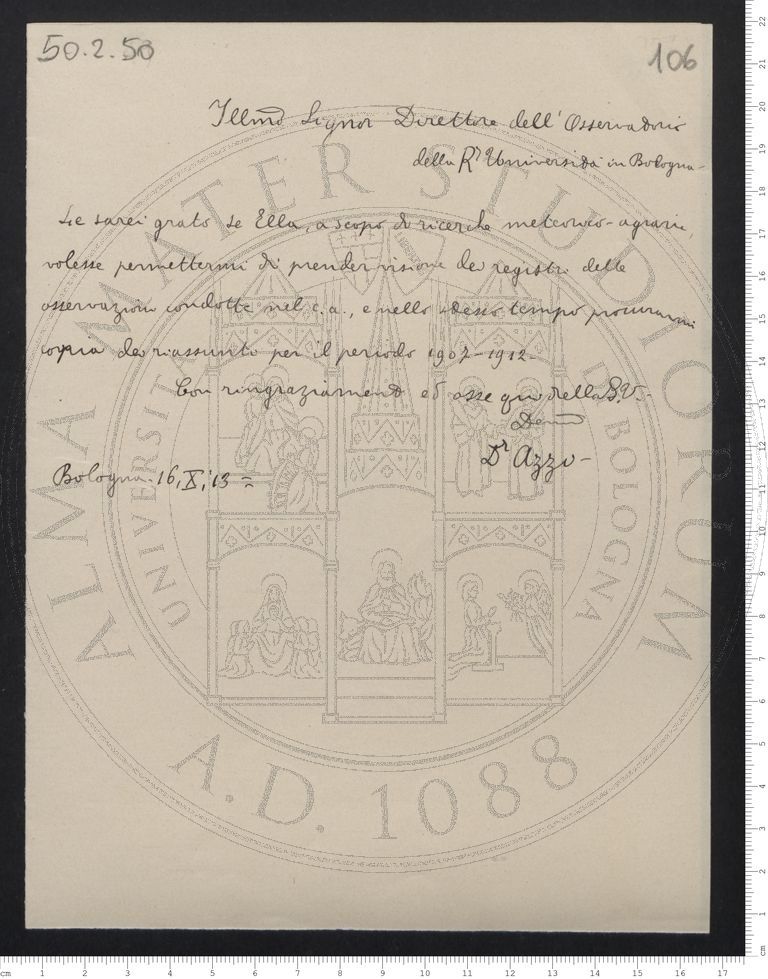 50.2.50
106
Illmo Signor Direttore dell'Osservatorio
della Ra Università in Bologna-
Le sarei grato se Ella, a scopo di ricerche meteorico-agrarie,
volesse permettermi di prender visione dei registri delle
osservazioni condotte nel c.a., e nello stesso tempo procurarmi
copia dei riassunti per il periodo 1907-1912-
Con ringraziamenti ed della S.V.-
Dr Azzi-
Bologna-16,X,13=
ALMA MATER STUDIORUM
UNIVERSITÀ DI BOLOGNA
A.D. 1088